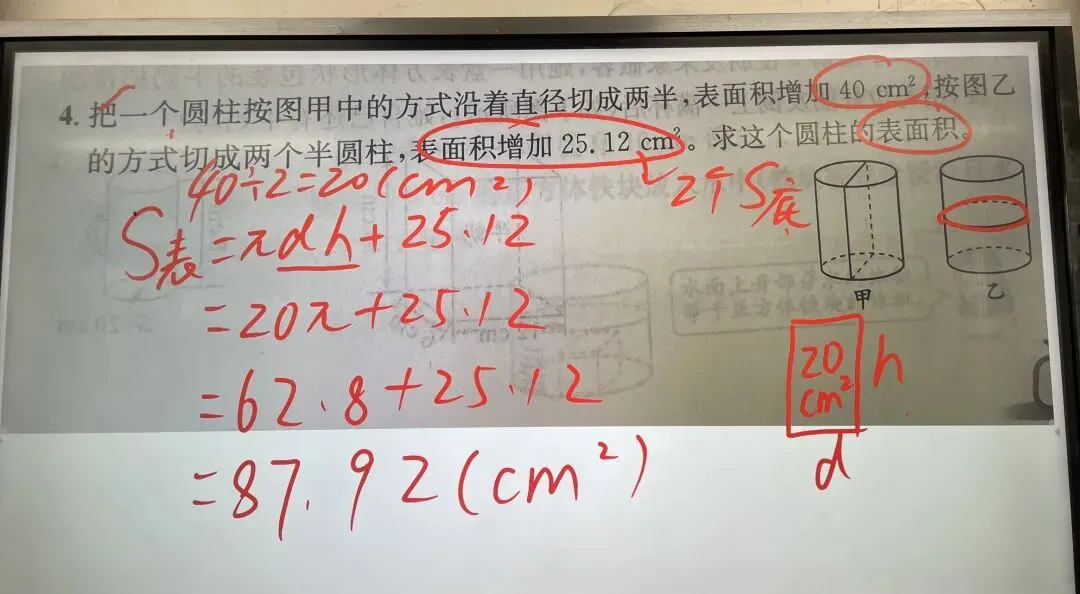 4. 把一个圆柱按图甲中的方式沿着直径切成两半,表面积增加 40 cm²,按图乙
的方式切成两个半圆柱,表面积增加 25.12 cm²。求这个圆柱的表面积。
40÷2=20(cm²)
2个S底
S表=πdh+25.12
=20π+25.12
=62.8+25.12
=87.92(cm²)
甲
乙
20
cm²
h
d